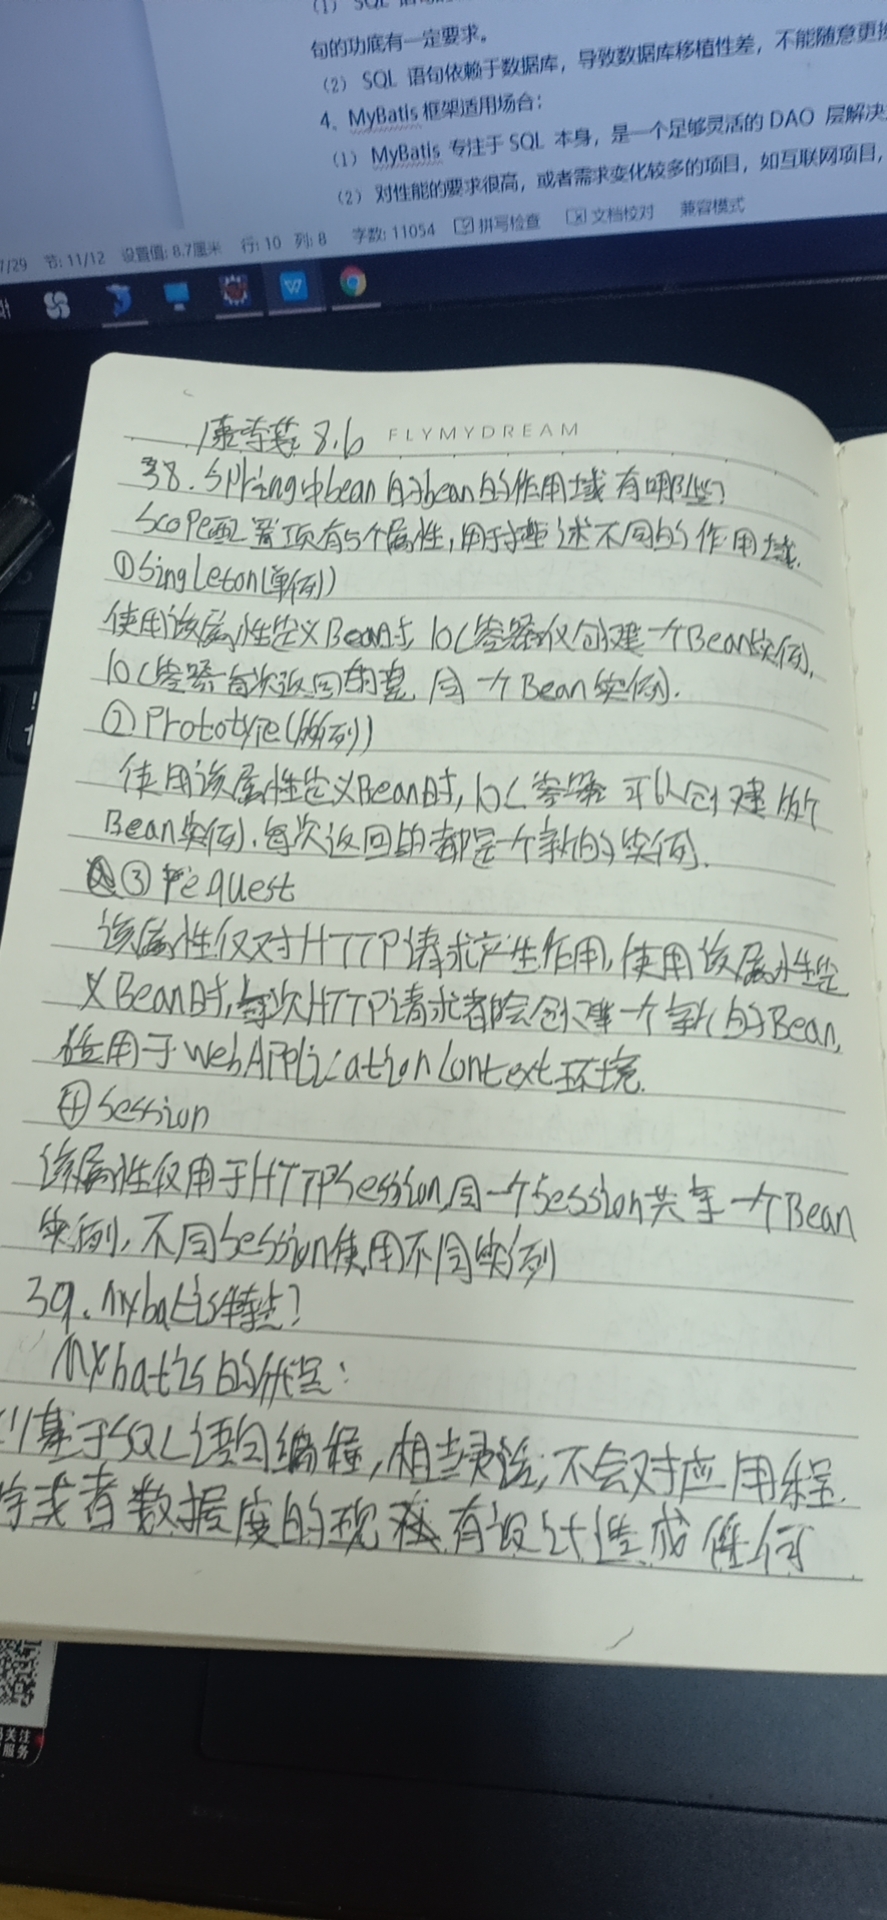 (1) SQL 语句的
句的功底有一定要求。
(2) SQL 语句依赖于数据库，导致数据库移植性差，不能随意更换
4、MyBatis 框架适用场合：
(1) MyBatis 专注于 SQL 本身，是一个足够灵活的 DAO 层解决
(2) 对性能的要求很高，或者需求变化较多的项目，如互联网项目，
7/29 节: 11/12 设置值: 8.7厘米 行: 10 列: 8 字数: 11054 拼写检查 文档校对 兼容模式
8.6 FLYMYDREAM
38.Spring中bean的bean的作用域有哪些?
Scope配置项有5个属性,用于描述不同的作用域.
①Singleton(单例)
使用该属性定义Bean时,IOC容器仅创建一个Bean实例,
IOC容器每次返回的是同一个Bean实例.
②Prototype(多列)
使用该属性定义Bean时,IOC容器可以创建多个
Bean实例.每次返回的都是一个新的实例.
③request
该属性仅对HTTP请求产生作用,使用该属性定
义Bean时,每次HTTP请求都会创建一个新的Bean,
适用于WebApplicationContext环境.
④Session
该属性仅用于HTTPSession,同一个Session共享一个Bean
实例,不同Session使用不同实例
39.Mybatis特点?
Mybatis的优点:
(1)基于SQL语句编程,相当灵活,不会对应用程
序或者数据库的现有设计造成任何
关注
服务